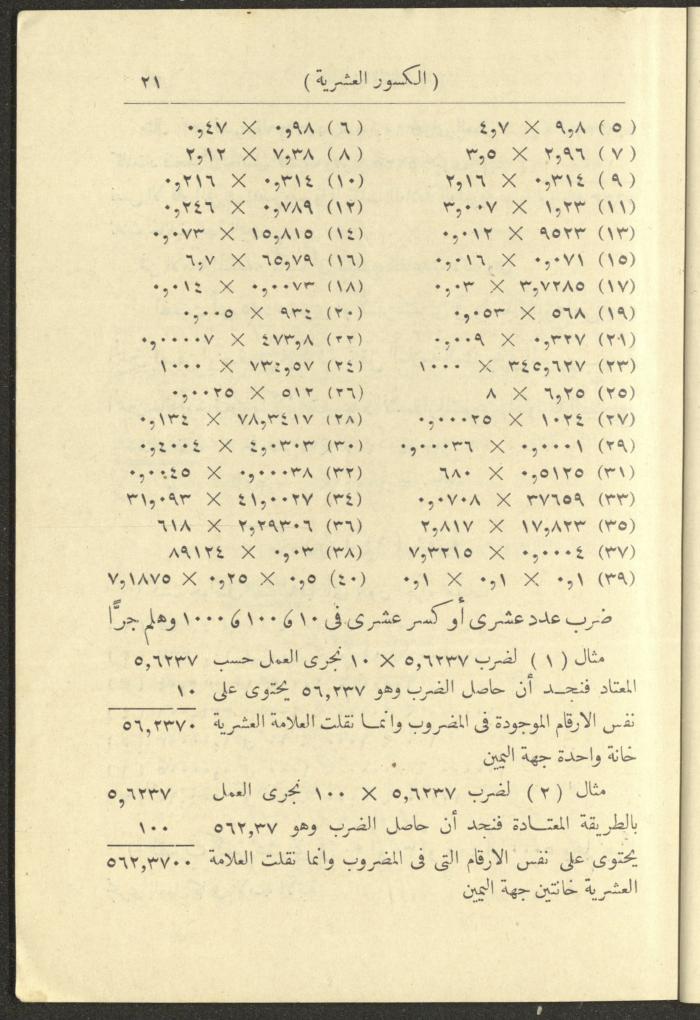 ( الكسور العشرية ) ٢١
(٥) ٩,٨ × ٤,٧ (٦) ٠,٩٨ × ٠,٤٧
(٧) ٢,٩٦ × ٣,٥ (٨) ٧,٣٨ × ٢,١٢
(٩) ٠,٣١٤ × ٢,١٦ (١٠) ٠,٣١٤ × ٠,٢١٦
(١١) ١,٢٣ × ٣,٠٠٧ (١٢) ٠,٧٨٩ × ٠,٢٤٦
(١٣) ٩٥٢٣ × ٠,٠١٢ (١٤) ١٥,٨١٥ × ٠,٠٧٣
(١٥) ٠,٠٧١ × ٠,٠١٦ (١٦) ٦٥,٧٩ × ٦,٧
(١٧) ٣,٧٢٨٥ × ٠,٠٣ (١٨) ٠,٠٠٧٣ × ٠,٠١٤
(١٩) ٥٦٨ × ٠,٠٥٣ (٢٠) ٩٣٤ × ٠,٠٠٥
(٢١) ٠,٣٢٧ × ٠,٠٠٩ (٢٢) ٤٧٣,٨ × ٠,٠٠٠٠٧
(٢٣) ٣٤٥,٦٢٧ × ١٠٠٠ (٢٤) ٧٣٤,٥٧ × ١٠٠٠
(٢٥) ٦,٢٥ × ٨ (٢٦) ٥١٢ × ٠,٠٠٢٥
(٢٧) ١٠٢٤ × ٠,٠٠٠٢٥ (٢٨) ٧٨,٣٤١٧ × ٠,١٣٤
(٢٩) ٠,٠٠٠١ × ٠,٠٠٠٣٦ (٣٠) ٤,٠٣٠٣ × ٠,٤٠٠٤
(٣١) ٠,٥١٢٥ × ٦٨٠ (٣٢) ٠,٠٠٠٣٨ × ٠,٠٠٤٥
(٣٣) ٣٧٦٥٩ × ٠,٠٧٠٨ (٣٤) ٤١,٠٠٢٧ × ٣١,٠٩٣
(٣٥) ١٧,٨٢٣ × ٢,٨١٧ (٣٦) ٢,٢٩٣٠٦ × ٦١٨
(٣٧) ٠,٠٠٠٤ × ٧,٣٢١٥ (٣٨) ٠,٠٣ × ٨٩١٢٤
(٣٩) ٠,١ × ٠,١ × ٠,١ (٤٠) ٠,٥ × ٠,٢٥ × ٧,١٨٧٥
ضرب عدد عشرى أو كسر عشرى فى ١٠ ؤ ١٠٠ ؤ ١٠٠٠ وهلم جرًّا
مثال ( ١ ) لضرب ٥,٦٢٣٧ × ١٠ نجرى العمل حسب ٥,٦٢٣٧
المعتاد فنجد أن حاصل الضرب وهو ٥٦,٢٣٧ يحتوى على ١٠
نفس الارقام الموجودة فى المضروب وانما نقلت العلامة العشرية ٥٦,٢٣٧٠
خانة واحدة جهة اليمين
مثال ( ٢ ) لضرب ٥,٦٢٣٧ × ١٠٠ نجرى العمل ٥,٦٢٣٧
بالطريقة المعتادة فنجد أن حاصل الضرب وهو ٥٦٢,٣٧ ١٠٠
يحتوى على نفس الارقام التى فى المضروب وانما نقلت العلامة ٥٦٢,٣٧٠٠
العشرية خانتين جهة اليمين